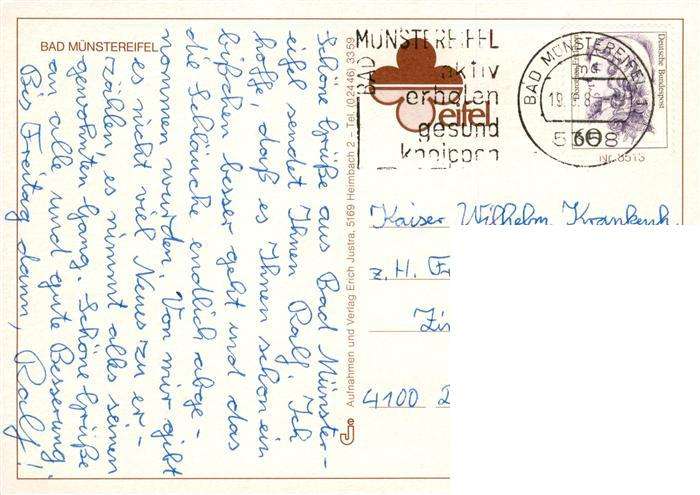 BAD MÜNSTEREIFEL
Schöne Grüße aus Bad Münster-
eifel sendet Ihnen Ralf. Ich
hoffe, daß es Ihnen schon ein
bißchen besser geht und das
die Schläuche endlich abge-
nommen wurden. Von mir gibt
es nicht viel Neues zu er-
zählen, es nimmt alles seinen
gewohnten Gang. Schöne Grüße
an alle und gute Besserung.
Bis Freitag dann, Ralf!
Aufnahmen und Verlag Erich Justra, 5169 Heimbach 2 - Tel. (02446) 3359
BAD
MÜNSTEREIFEL
aktiv
erholen
gesund
kneippen
eifel
BAD MÜNSTEREIFEL 1
5358
Deutsche Bundespost
60
Nr. 8513
Kaiser Wilhelm Krankenh.
z. H.
4100